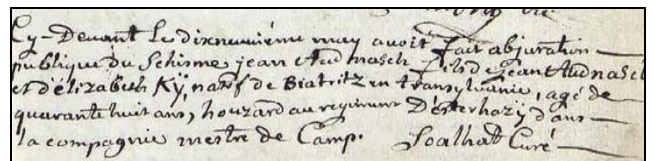 Cy-Devant Le dixneuviéme may avoit fait abjuration
publique du Schisme jean Audnasch fils de jean Audnasch
et d'élizabeth Kÿ, natif de Biatritz en transylvanie, agé de
quarante huit ans, houzard au regiment D'esterhazÿ dans
la compagnie mestre de Camp. Soalhat Curé